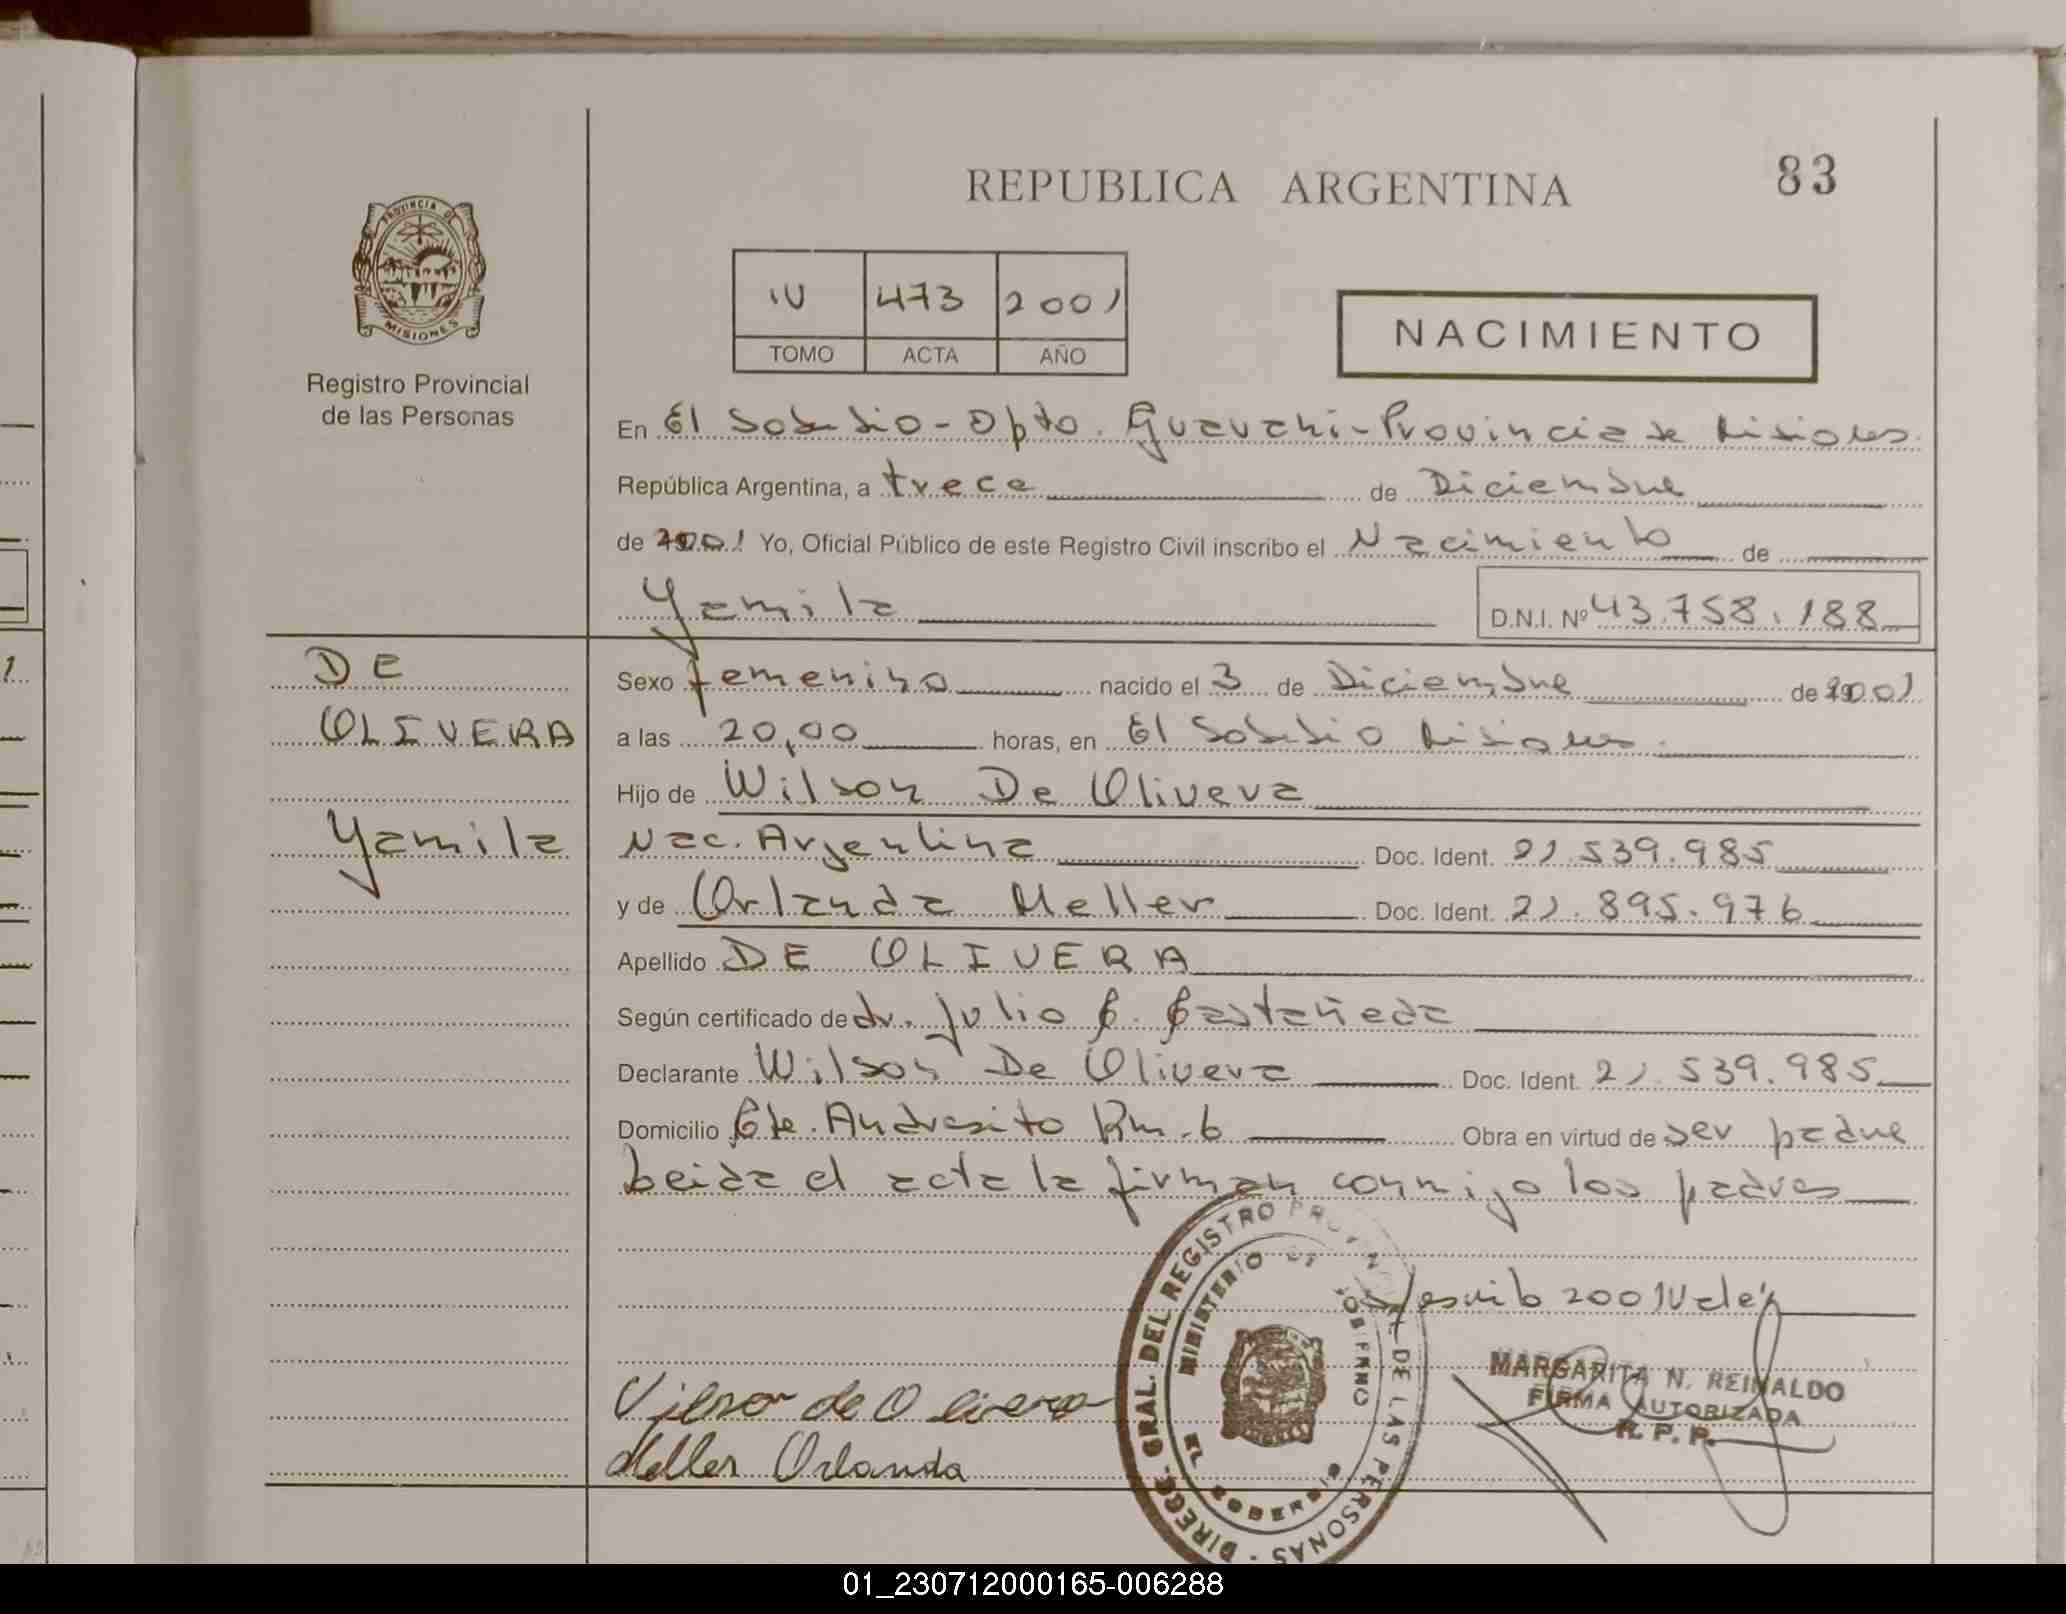 REPUBLICA ARGENTINA
83
PROVINCIA DE
MISIONES
Registro Provincial
de las Personas
IV 473 2001
TOMO ACTA AÑO
NACIMIENTO
En El Soberbio - Dpto. Guaraní - Provincia de Misiones.
República Argentina, a trece de Diciembre
de 2001 Yo, Oficial Público de este Registro Civil inscribo el Nacimiento de
Yamila D.N.I. Nº 43.758.188
DE
OLIVERA
Yamila
Sexo femenino nacido el 3 de Diciembre de 2001
a las 20,00 horas, en El Soberbio Misiones.
Hijo de Wilson De Olivera
Nac. Argentina Doc. Ident. 21.539.985
y de Orlanda Meller Doc. Ident. 21.895.976
Apellido DE OLIVERA
Según certificado de dr. Julio C. Castañeda
Declarante Wilson De Olivera Doc. Ident. 21.539.985
Domicilio Cte. Andresito Km. 6 Obra en virtud de ser padre
Leida el acta la firman conmigo los padres
2001 Vale
MARGARITA N. REINALDO
FIRMA AUTORIZADA
R. P. P.
Vilson de Olivera
Meller Orlanda
DIREC. GRAL. DEL REGISTRO PROVINCIAL DE LAS PERSONAS
MINISTERIO DE GOBIERNO
EL SOBERBIO
01_230712000165-006288